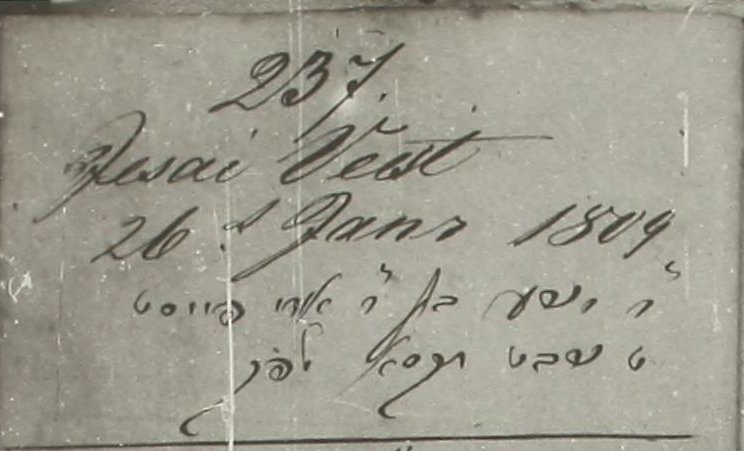 237.
Jesai Veist
26.t Janr 1809
ר' ישעי בן ר' ארי פייסט
ט שבט לפק